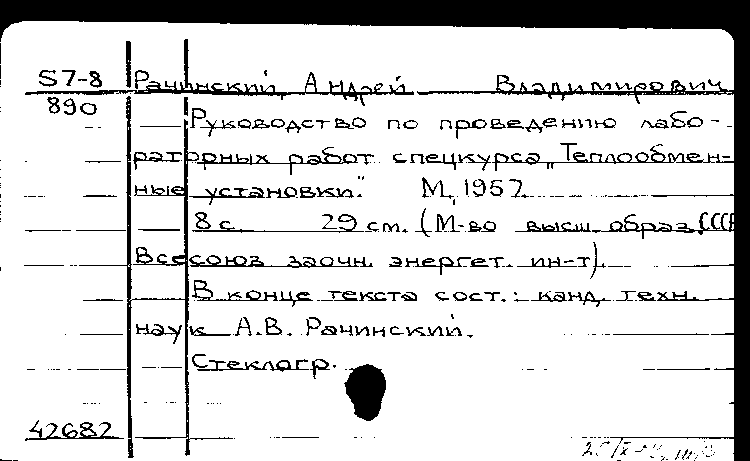 S7-8 Рачинский, Андрей Владимирович
890
Руководство по проведению лабо-
раторных работ спецкурса „Теплообмен-
ные установки." М, 1957.
8 с. 29 см. (М-во высш. образ. СССР
Всесоюз заочн. энергет. ин-т).
В конце текста сост.: канд. техн.
наук А.В. Рачинский.
Стеклогр.
42682